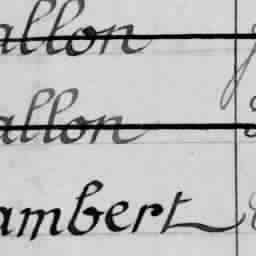 allon
allon
ambert